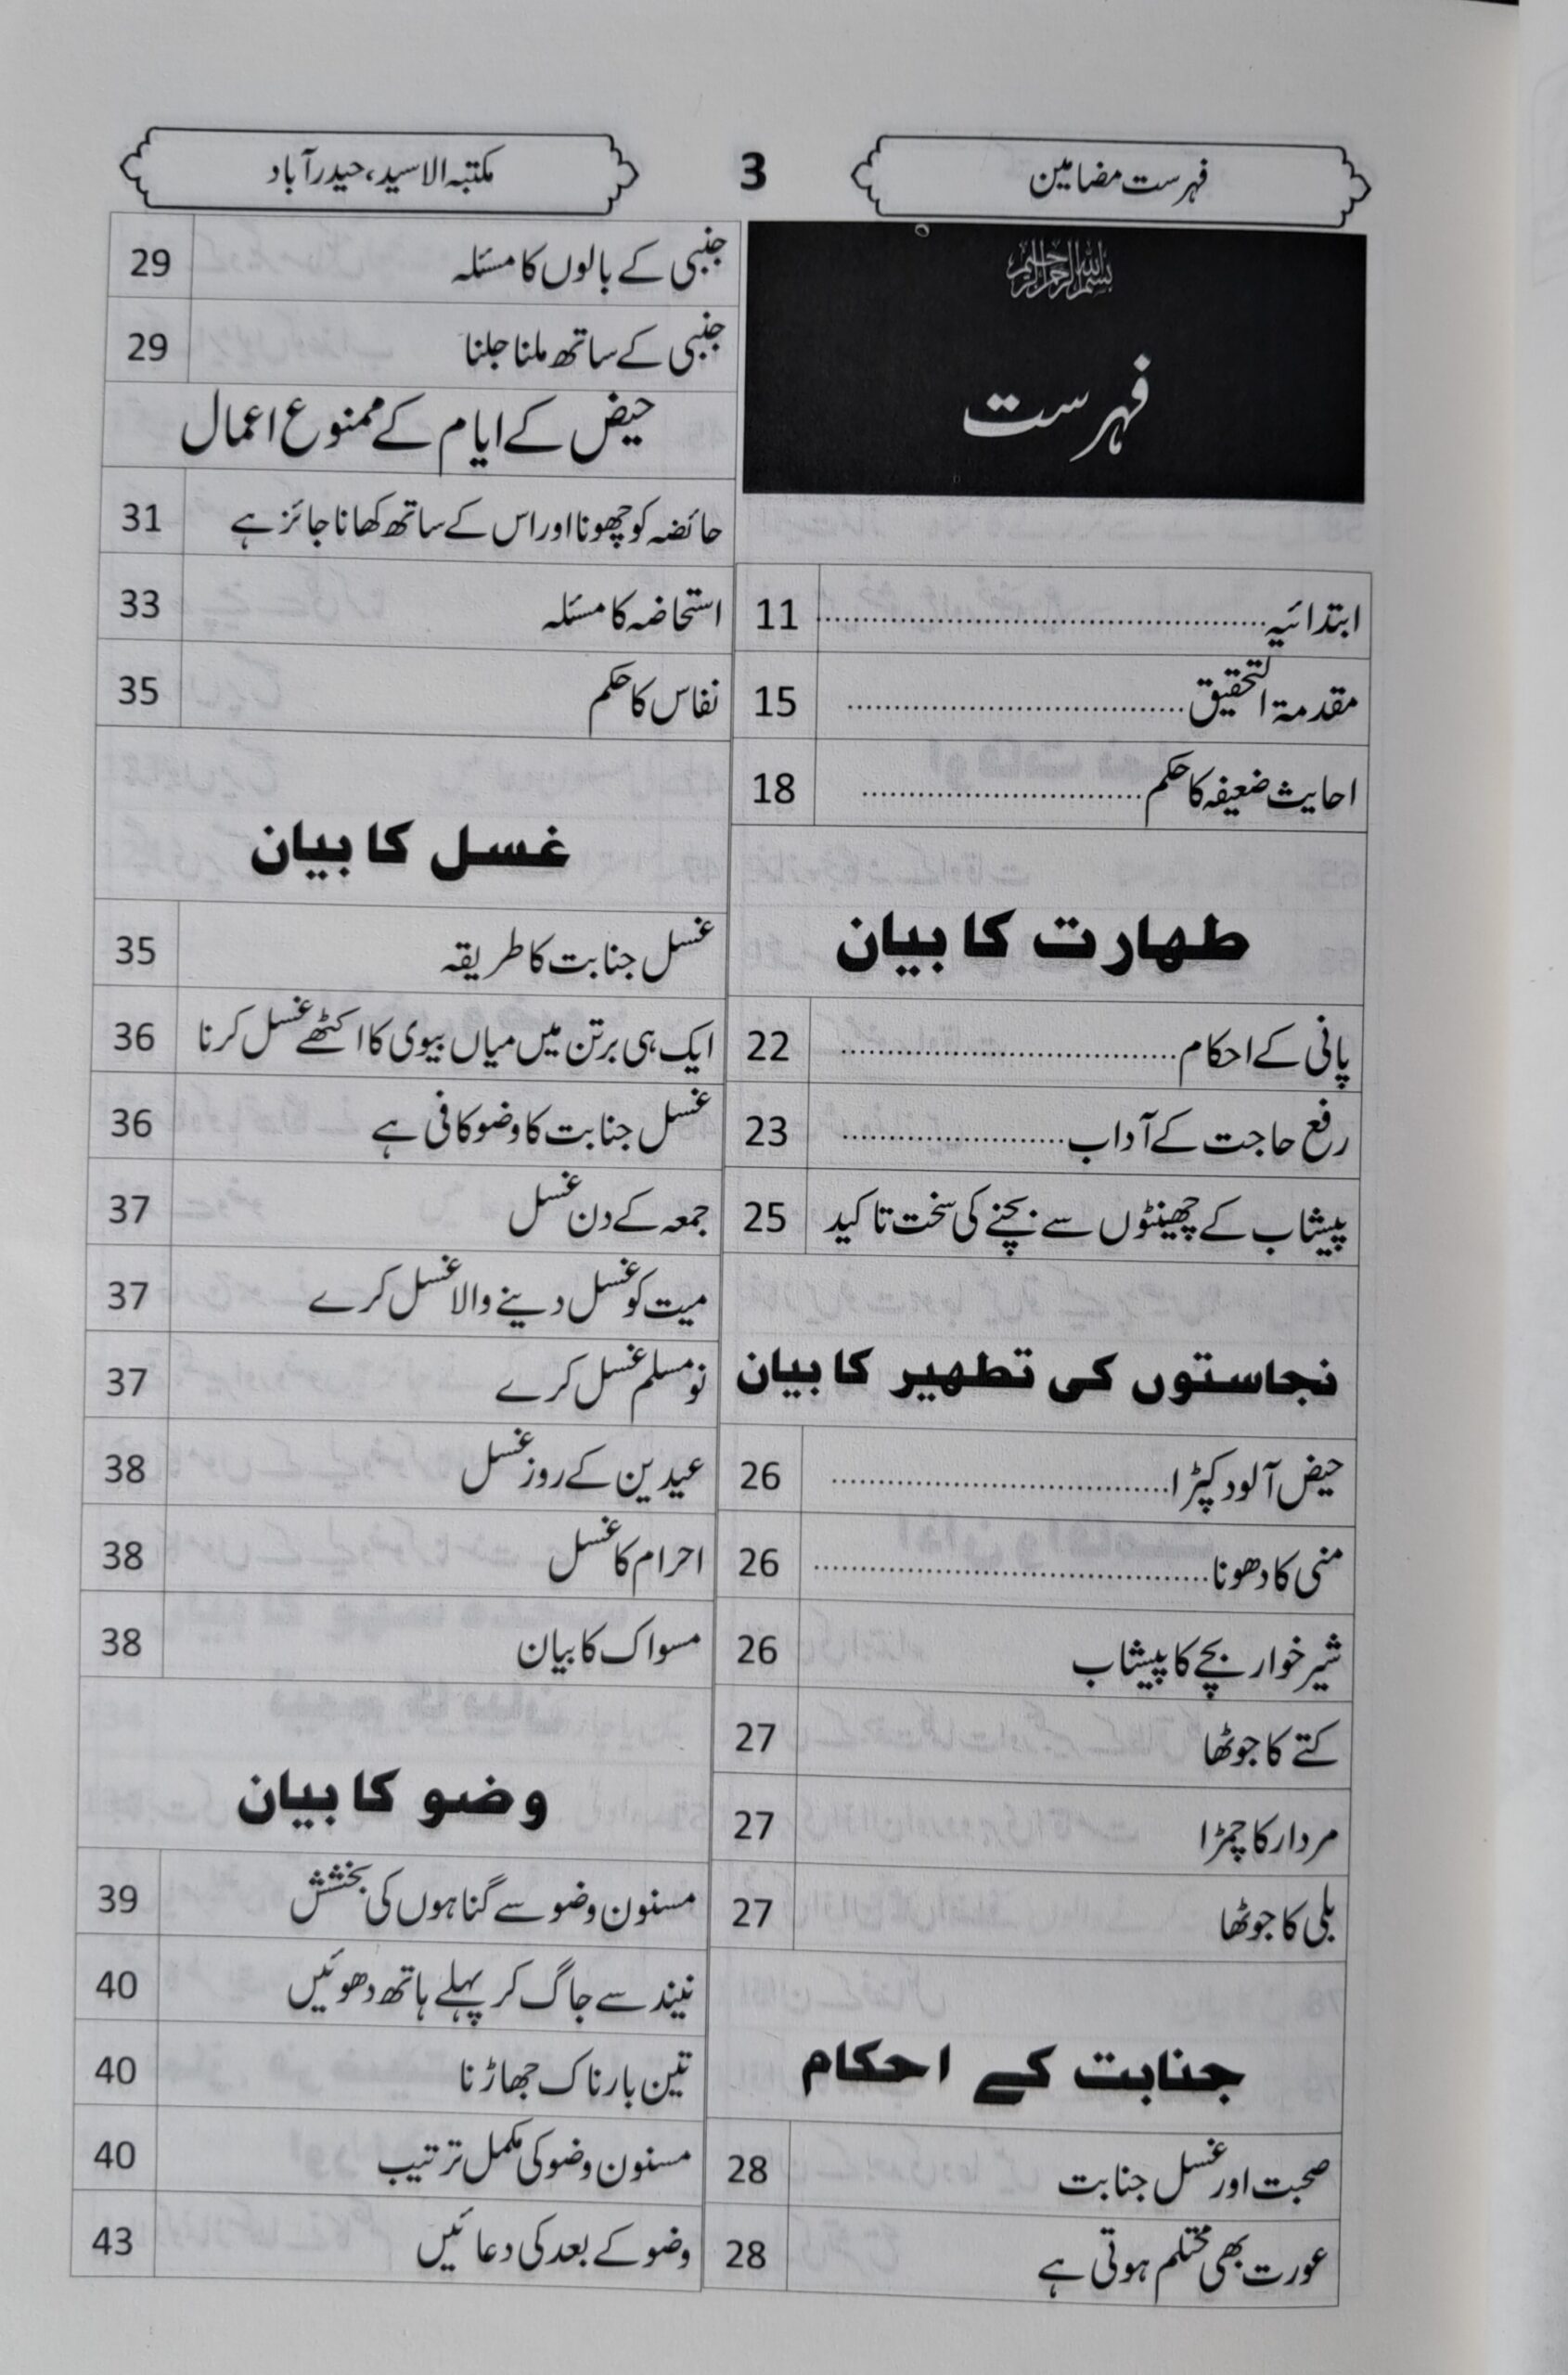 فہرست مضامین
3
مکتبہ الاسید، حیدرآباد
بسم اللہ الرحمن الرحیم
فہرست
ابتدائیہ 11
مقدمۃ التحقیق 15
احایث ضعیفہ کا حکم 18
طہارت کا بیان
پانی کے احکام 22
رفع حاجت کے آداب 23
پیشاب کے چھینٹوں سے بچنے کی سخت تاکید 25
نجاستوں کی تطہیر کا بیان
حیض آلود کپڑا 26
منی کا دھونا 26
شیر خوار بچے کا پیشاب 26
کتے کا جوٹھا 27
مردار کا چمڑا 27
بلی کا جوٹھا 27
جنابت کے احکام
صحبت اور غسل جنابت 28
عورت بھی محتلم ہوتی ہے 28
جنبی کے بالوں کا مسئلہ 29
جنبی کے ساتھ ملنا جلنا 29
حیض کے ایام کے ممنوع اعمال
حائضہ کو چھونا اور اس کے ساتھ کھانا جائز ہے 31
استحاضہ کا مسئلہ 33
نفاس کا حکم 35
غسل کا بیان
غسل جنابت کا طریقہ 35
ایک ہی برتن میں میاں بیوی کا اکٹھے غسل کرنا 36
غسل جنابت کا وضو کافی ہے 36
جمعہ کے دن غسل 37
میت کو غسل دینے والا غسل کرے 37
نو مسلم غسل کرے 37
عیدین کے روز غسل 38
احرام کا غسل 38
مسواک کا بیان 38
وضو کا بیان
مسنون وضو سے گناہوں کی بخشش 39
نیند سے جاگ کر پہلے ہاتھ دھوئیں 40
تین بار ناک جھاڑنا 40
مسنون وضو کی مکمل ترتیب 40
وضو کے بعد کی دعائیں 43